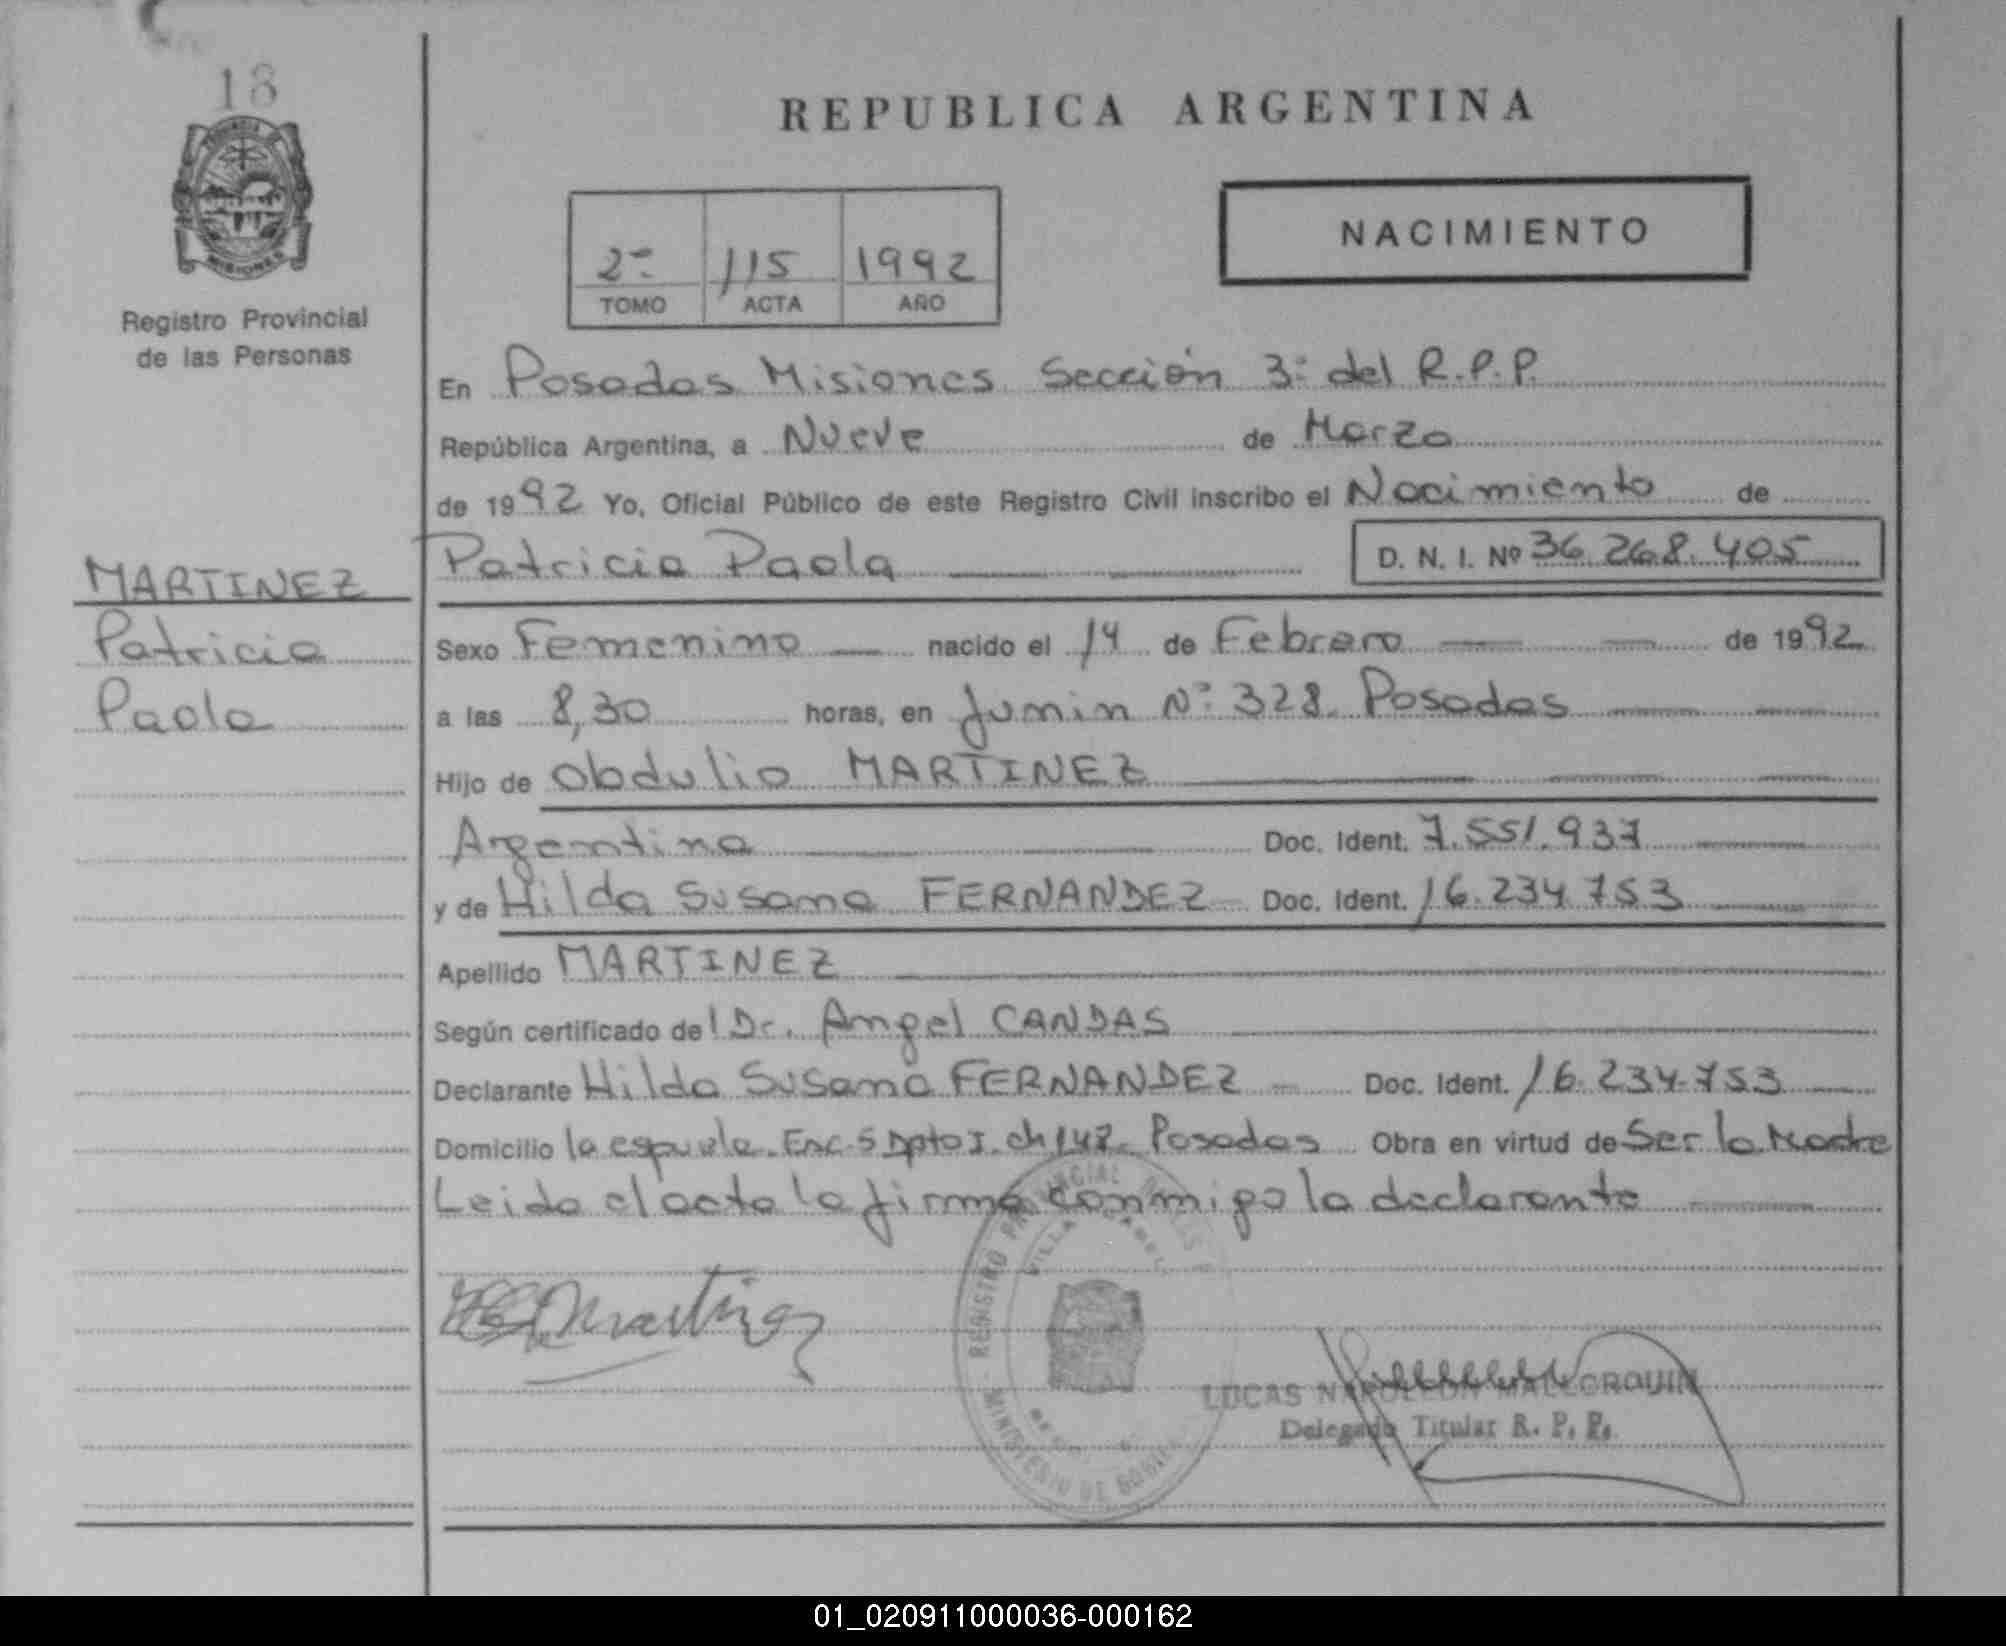 18
PROVINCIA DE
MISIONES
Registro Provincial
de las Personas
MARTINEZ
Patricia
Paola
REPUBLICA ARGENTINA
2º 115 1992
TOMO ACTA AÑO
NACIMIENTO
En Posadas Misiones Sección 3º del R.P.P.
República Argentina, a Nueve de Marzo
de 1992 Yo, Oficial Público de este Registro Civil inscribo el Nacimiento de
Patricia Paola D. N. I. Nº 36.268.405
Sexo Femenino nacido el 14 de Febrero de 1992
a las 8,30 horas, en Junin Nº 328. Posadas
Hijo de Obdulio MARTINEZ
Argentina Doc. Ident. 7.551.937
y de Hilda Susana FERNANDEZ Doc. Ident. 16.234.753
Apellido MARTINEZ
Según certificado del Dr. Angel CANDAS
Declarante Hilda Susana FERNANDEZ Doc. Ident. 16.234.753
Domicilio la espuela. Esc. 5 Dpto I. ch 147. Posadas Obra en virtud de Ser la Madre
Leida el acta la firma conmigo la declarante
Martinez
REGISTRO PROVINCIAL DE LAS
VILLA CABELLO
MINISTERIO DE GOBIERNO
LUCAS NAPOLEON MALLORQUIN
Delegado Titular R. P. P.
01_020911000036-000162